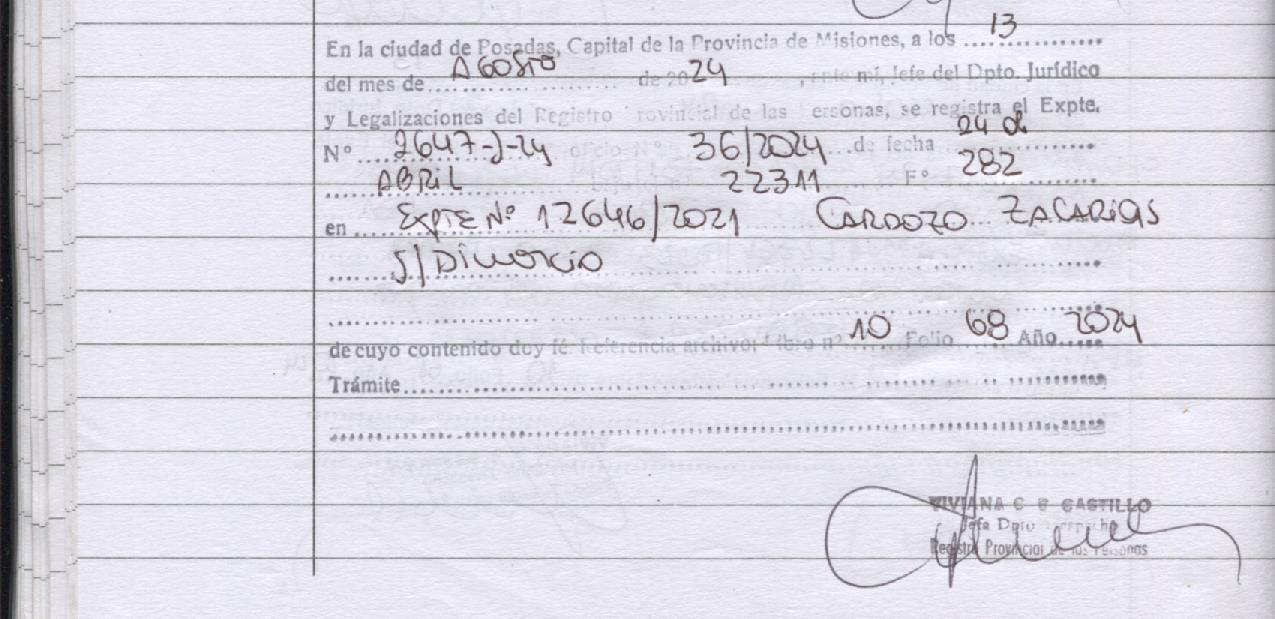 En la ciudad de Posadas, Capital de la Provincia de Misiones, a los 13
del mes de AGOSTO de 2024, ante mí, Jefe del Dpto. Jurídico
y Legalizaciones del Registro rovincial de las ersonas, se registra el Expte.
Nº 2647-J-24 oficio Nº 36/2024 de fecha 24 de
ABRIL 22311 Fº 282
en EXPTE Nº 12646/2021 CARDOZO ZACARIAS
S/ DIVORCIO
de cuyo contenido doy fé. Referencia archivo: Libro nº 10 Folio 68 Año 2024
Trámite
VIVIANA C B CASTILLO
Jefa Dpto
Registro Provincial de las Personas